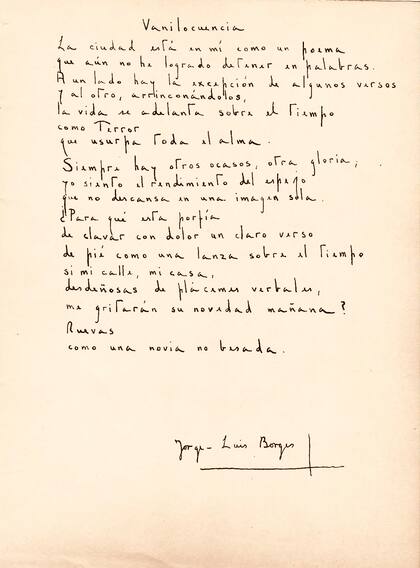 Vanilocuencia
La ciudad está en mí como un poema
que aún no he logrado detener en palabras.
A un lado hay la excepción de algunos versos
y al otro, arrinconándolos,
la vida se adelanta sobre el tiempo
como Terror
que usurpa toda el alma.
Siempre hay otros ocasos, otra gloria;
yo siento el rendimiento del espejo
que no descansa en una imagen sola.
¿Para qué esta porfía
de clavar con dolor un claro verso
de pié como una lanza sobre el tiempo
si mi calle, mi casa,
desdeñosas de plácemes verbales,
me gritarán su novedad mañana?
Nuevas
como una novia no besada.
Jorge-Luis Borges